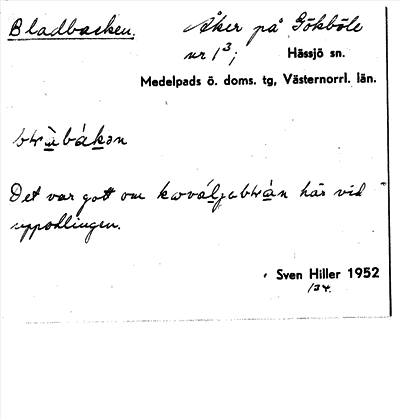 Bladbacken. Åker på Gökböle
nr 1³; Hässjö sn.
Medelpads ö. doms. tg, Västernorrl. län.
Det var gott om här vid
uppodlingen.
Sven Hiller 1952
134.